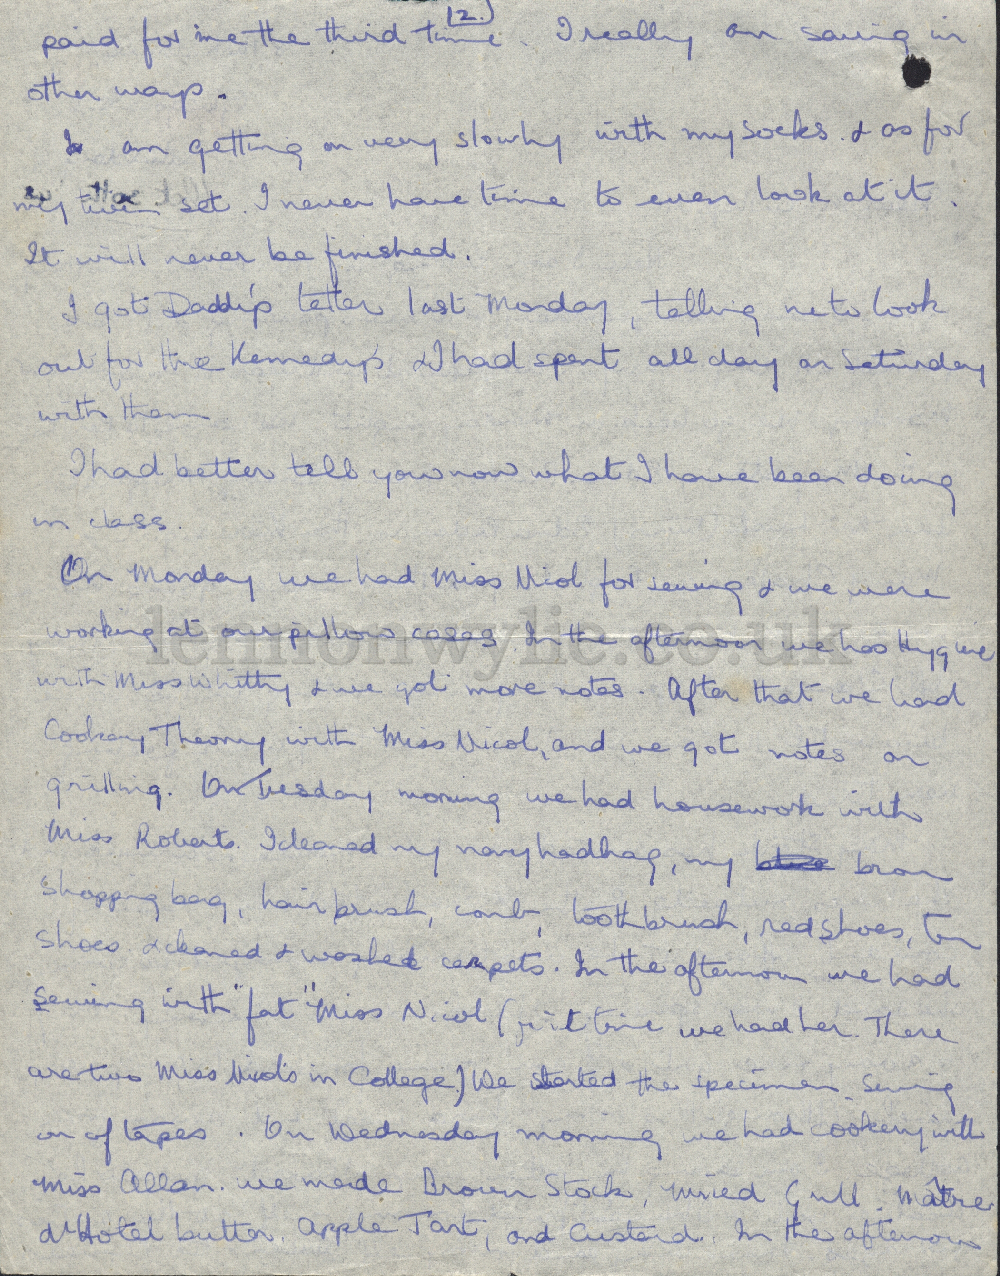 [2.]
paid for me the third time. I really am saving in
other ways.
I am getting on very slowly with my socks. & as for
my twin set. I never have time to even look at it.
It will never be finished.
I got Daddy's letter last Monday, telling me to look
out for the Kennedy's & I had spent all day on Saturday
with them
I had better tell you now what I have been doing
in class.
On Monday we had Miss Nicol for sewing & we were
working at our pillow cases. In the afternoon we has Hygiene
lennonwylie.co.uk
with Miss Whitty & we got more notes. After that we had
Cookery Theory with Miss Nicol, and we got notes on
grilling. On Tuesday morning we had housework with
Miss Roberts. I cleaned my navy handbag, my brown
shopping bag, hair brush, comb, toothbrush, red shoes, tan
shoes & cleaned & washed carpets. In the afternoon we had
sewing with "fat" Miss Nicol (first time we had her. There
are two Miss Nicol's in College.) We started the specimen sewing
on of tapes. On Wednesday morning we had cookery with
Miss Allan. we made Brown Stock, Mixed Grill. Maître
d'Hotel butter. Apple Tart, and Custard. In the afternoon